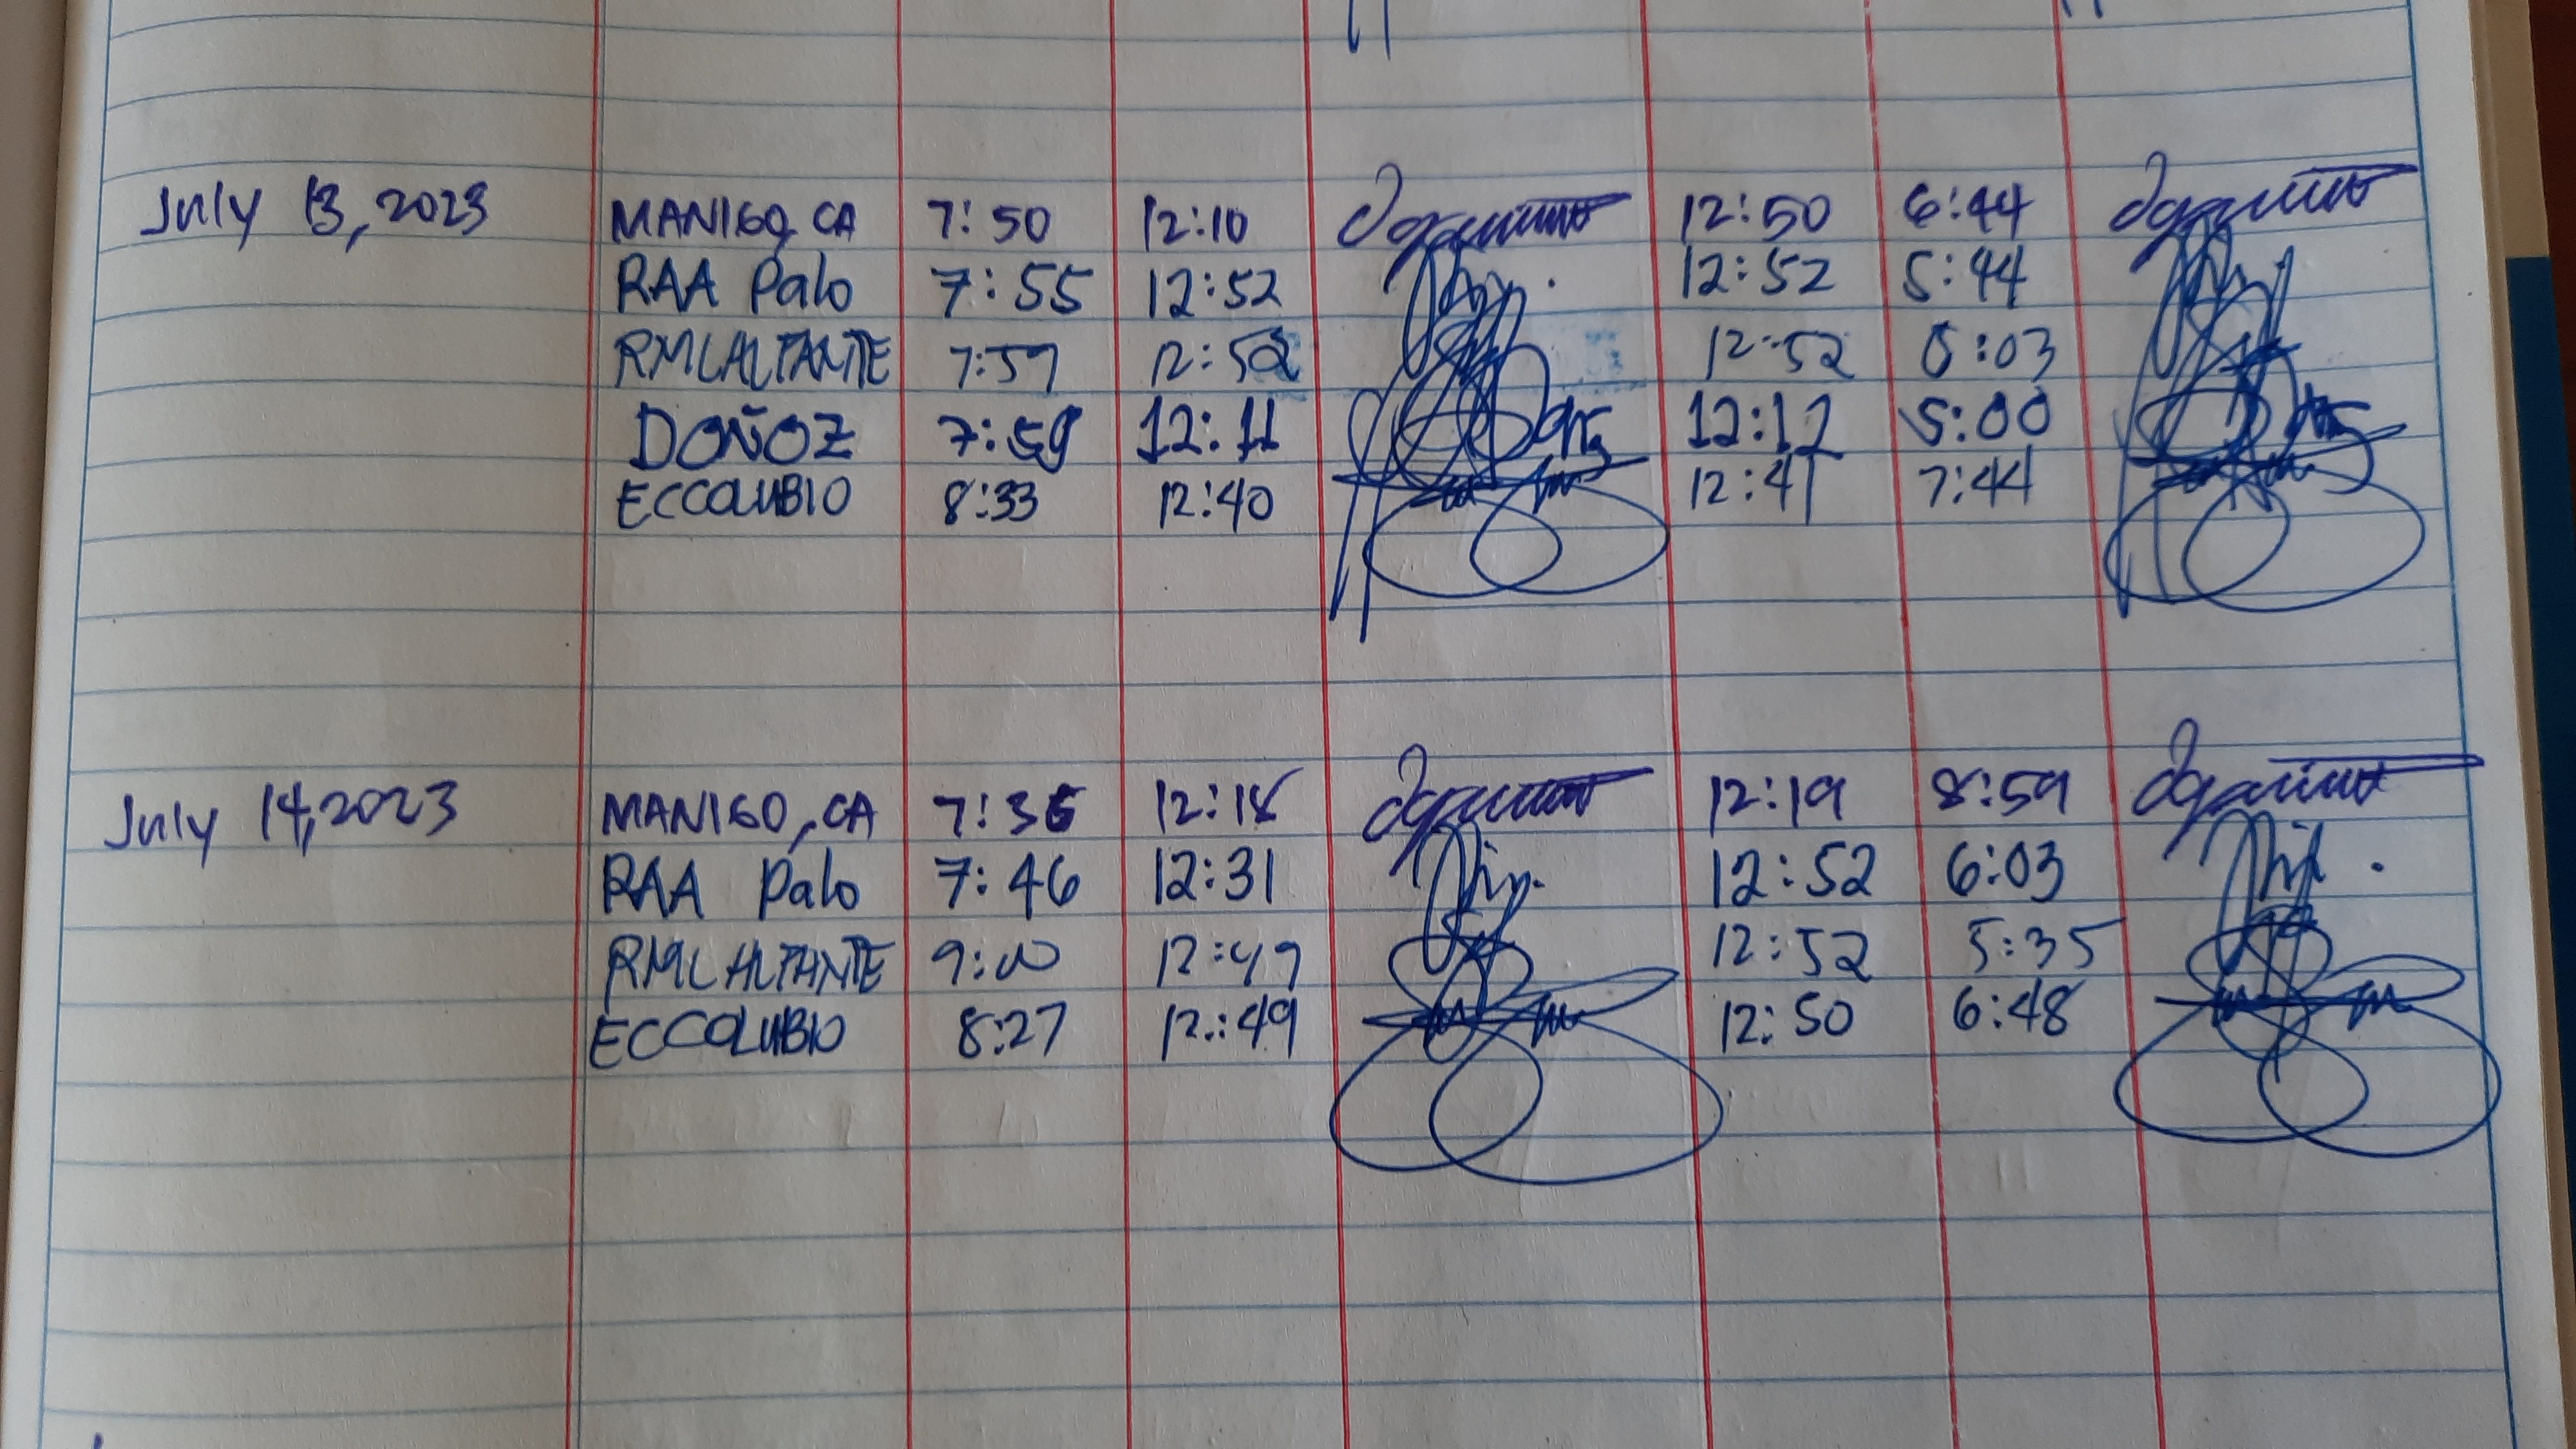 July 13, 2023 MANIGO, CA 7:50 12:10 12:50 6:44
RAA Palo 7:55 12:52 12:52 5:44
RMLALTANTE 7:59 12:52 12:52 6:03
DOÑOZ 7:59 12:11 12:12 5:00
ECCOLUBIO 8:33 12:40 12:41 7:44
July 14, 2023 MANIGO, CA 7:36 12:18 12:19 8:59
RAA Palo 7:46 12:31 12:52 6:03
RMLALTANTE 9:00 12:49 12:52 5:35
ECCOLUBIO 8:27 12:49 12:50 6:48